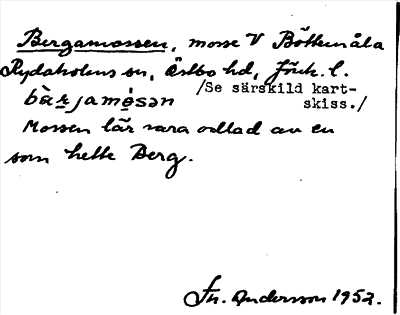 Bergamossen, mosse V Böttemåla
Rydaholms sn, Östbo hd, Jönk. l.
/Se särskild kart-
bàrjamòsən skiss./
Mossen lär vara odlad av en
som hette Berg.
Fr. Anderson 1952.